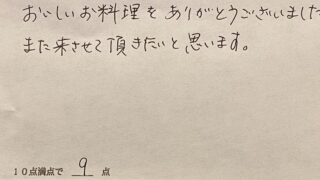 おいしいお料理をありがとうございました
また来させて頂きたいと思います。
10点満点で 9 点